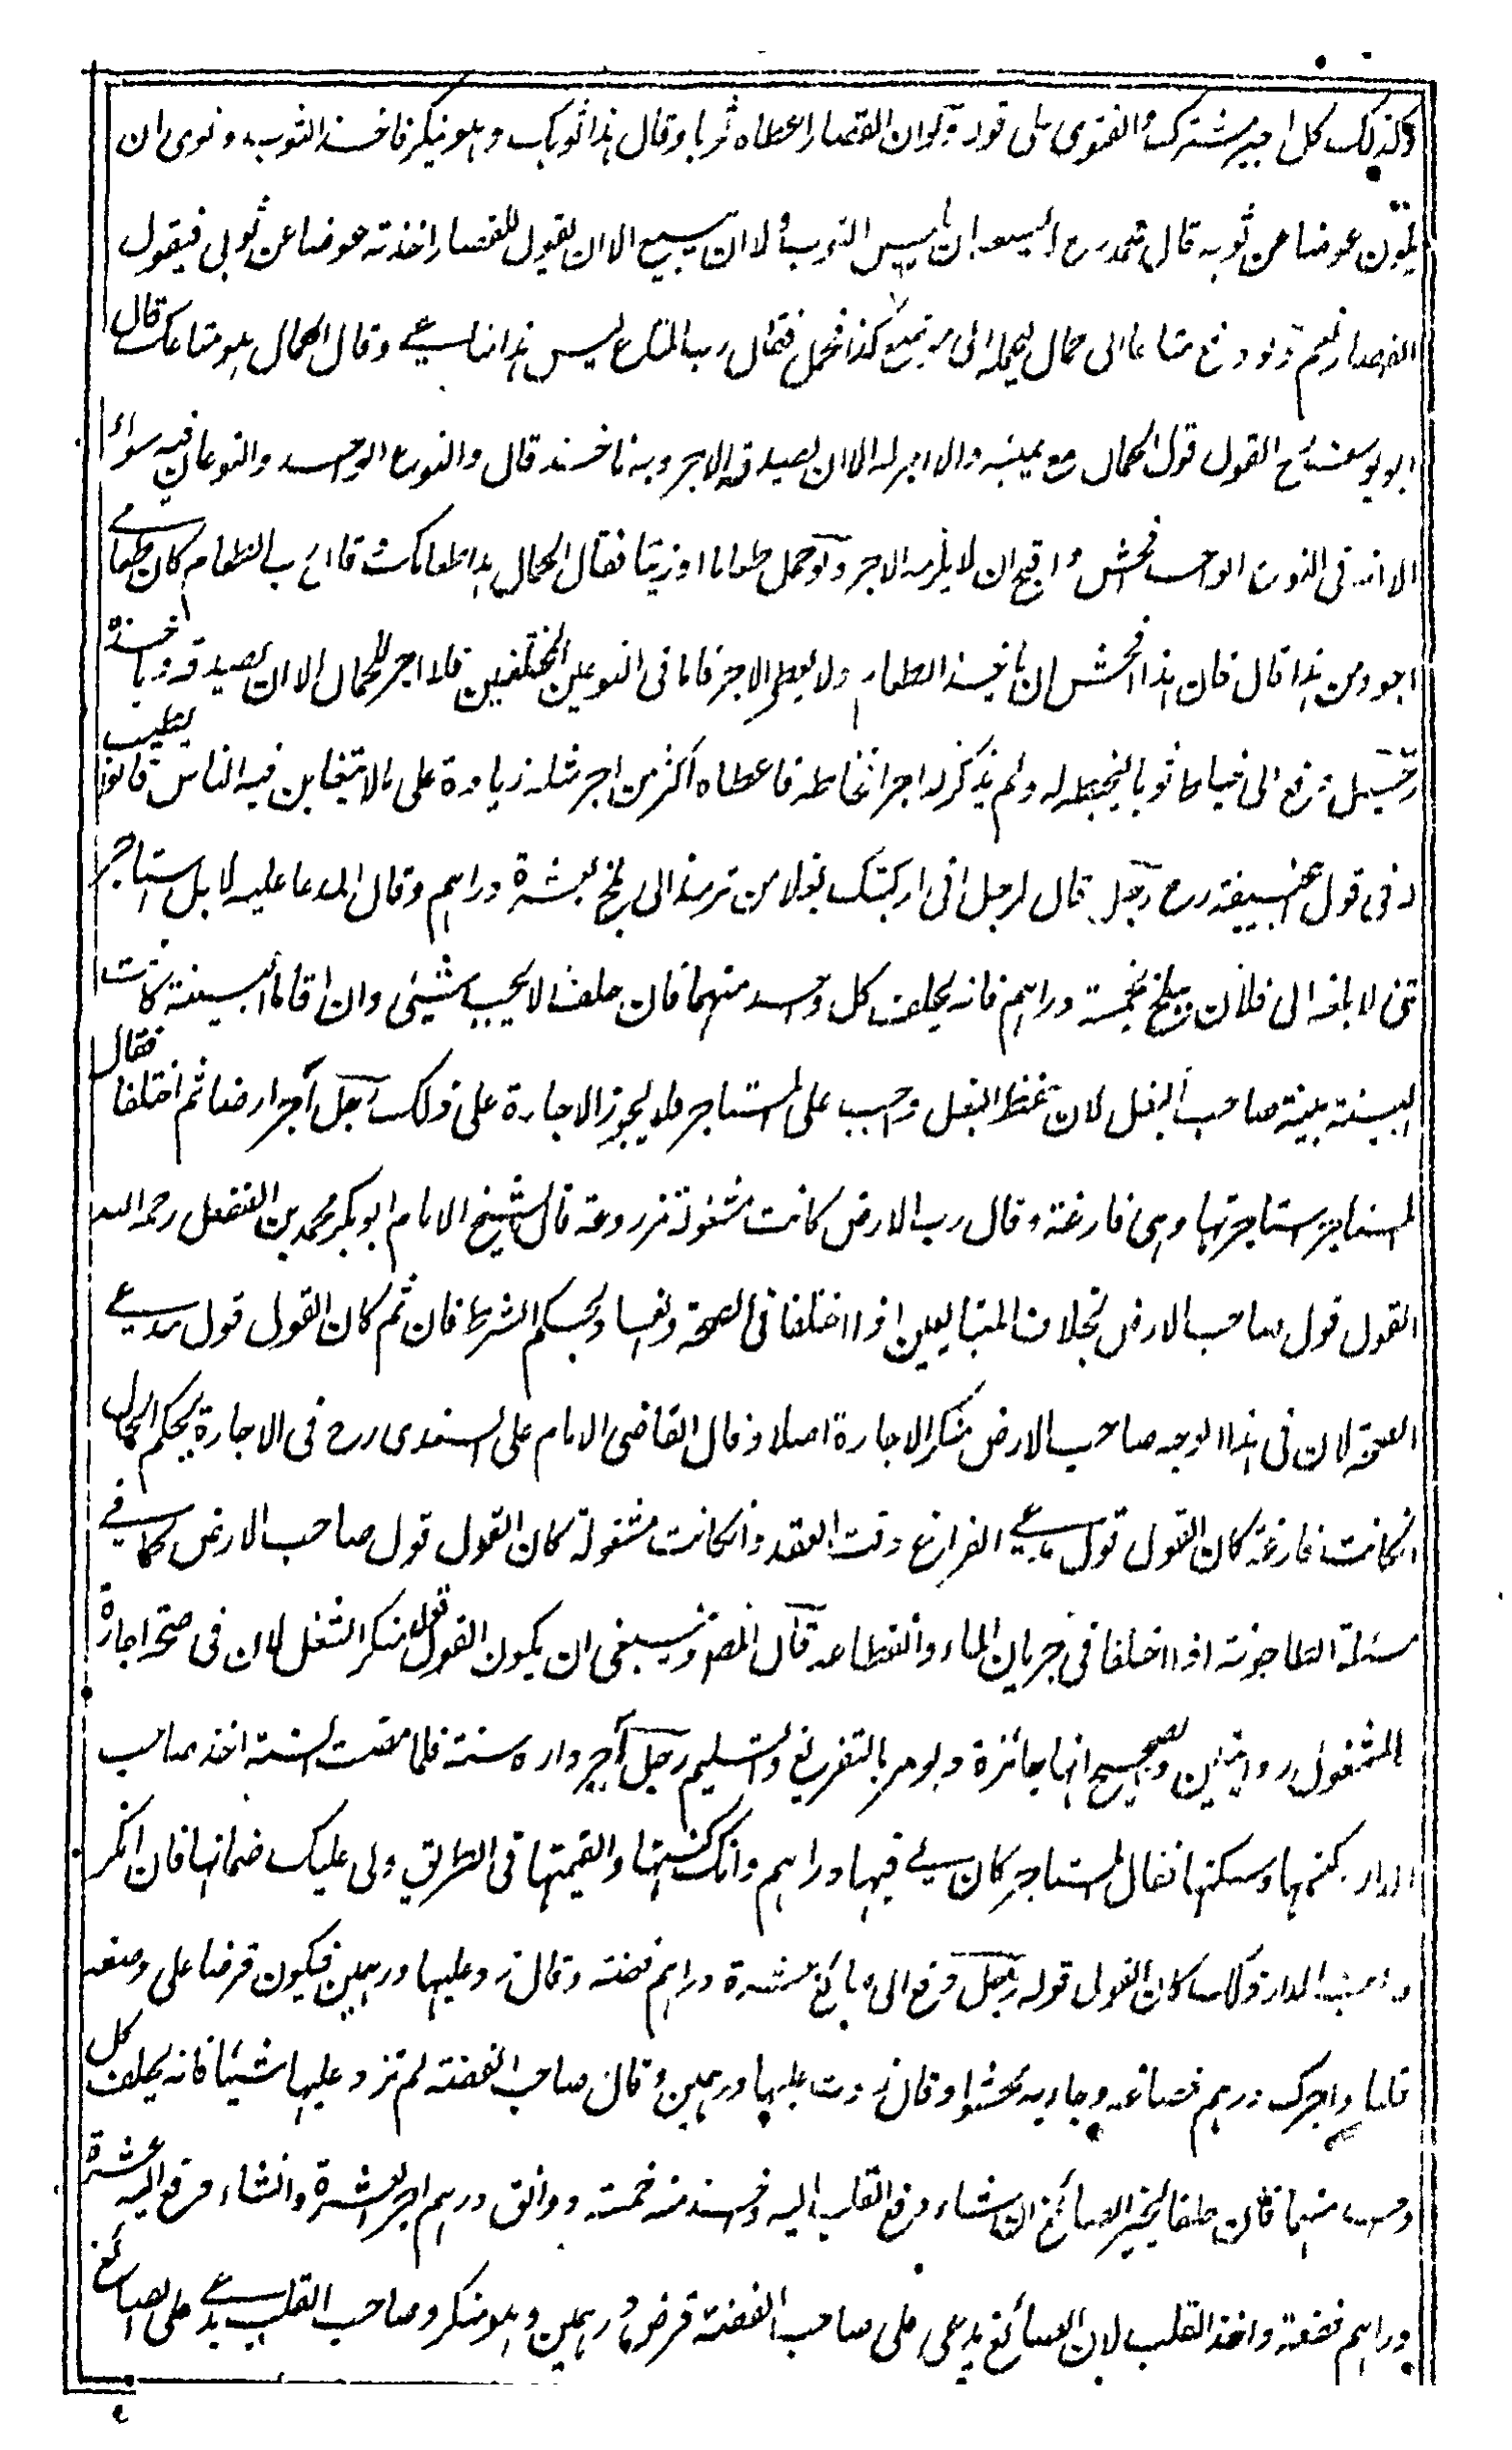 وكذلك كل اجير مشترك والفتوى على قوله ولوان القصار اعطاه ثوبا وقال هذا ثوبك وهو ينكر فاخذ الثوب ونوى ان
يكون عوضا عن ثوبه قال محمد رح لايسعه ان يلبس الثوب ولا ان يبيع الا ان يقول للقصار اخذته عوضا عن ثوبى فيقول
القصار نعم ولو دفع متاعا الى حمال ليحمله الى موضع كذا فحمل فقال رب المتاع ليس هذا متاعى وقال الحمال هو متاعك قال
ابو يوسف رح القول قول الحمال مع يمينه والا اجر له الا ان يصدقه الاجر وياخذ قال والنوع الواحد والنوعان فيه سواء
الا انه فى النوع الواحد افحش واقبح ان لا يلزمه الاجر ولو حمل طعاما او زيتا فقال الحمال هذا طعامك وقال رب الطعام كان طعامى
اجود من هذا قال فان هذا افحش ان ياخذ الطعام ولا يعطى الاجر فاما فى النوعين المختلفين فلا اجر للحمال الا ان يصدقه وياخذه
رجل دفع الى خياط ثوبا ليخيطه له ولم يذكر له اجرا فخاطه فاعطاه اكثر من اجر مثله زيادة على ما لا يتغابن فيه الناس قالوا يطيب
له فى قول ابى حنيفة رح رجل قال لرجل انى اركبتك بغلا من ترمذ الى بلخ بعشرة دراهم وقال المدعا عليه لا بل استاجر
تنى لابلغه الى فلان ببلخ بخمسة دراهم فانه يحلف كل واحد منهما فان حلفا لا يجب شيئ وان اقاما البينة كانت
البينة بينة صاحب البغل لان حفظ البغل واجب على المستاجر فلا يجوز الاجارة على ذلك رجل آجر ارضا ثم اختلفا فقال
المستاجر استاجرتها وهى فارغة وقال رب الارض كانت مشغولة مزروعة قال الشيخ الامام ابو بكر محمد بن الفضل رحمه الله
القول قول صاحب الارض بخلاف المتبايعين اذا اختلفا فى الصحة والفساد بحكم الشرط فان ثم كان القول قول مدعى
الصحة لان فى هذا الوجه صاحب الارض منكر الاجارة اصلا وقال القاضى الامام على السغدى رح فى الاجارة يحكم الحال
ان كانت فارغة كان القول قول مدعى الفراغ وقت العقد وانكانت مشغولة كان القول قول صاحب الارض كما فى
مسئلة الطاحونة اذا اختلفا فى جريان الماء وانقطاعه قال المصنف وينبغى ان يكون القول قول منكر الشغل لان فى صحة اجارة
المشغول روايتين والصحيح انها جائزة ويومر بالتفريغ والتسليم رجل آجر داره سنة فلما مضت السنة اخذ صاحب
الدار كنسها وسكنها فقال المستاجر كان لى فيها دراهم وانك كنستها والقيتها فى الطريق ولى عليك ضمانها فان انكر
صاحب الدار ذلك كان القول قوله رجل دفع الى صائغ عشرة دراهم فضة وقال زد عليها درهمين فيكون قرضا على وصغه
قلبا واجرك درهم فصاغه وجاء به محشوا وقال زدت عليها درهمين وقال صاحب الفضة لم تزد عليها شيئا فانه يحلف كل
واحد منهما فان حلفا يخير الصائغ ان شاء دفع القلب اليه واخذ منه خمسة دوانق درهم اجر العشرة وان شاء دفع اليه عشرة
دراهم فضة واخذ القلب لان الصائغ يدعى على صاحب الفضة قرض درهمين وهو منكر وصاحب القلب يدعى على الصائغ